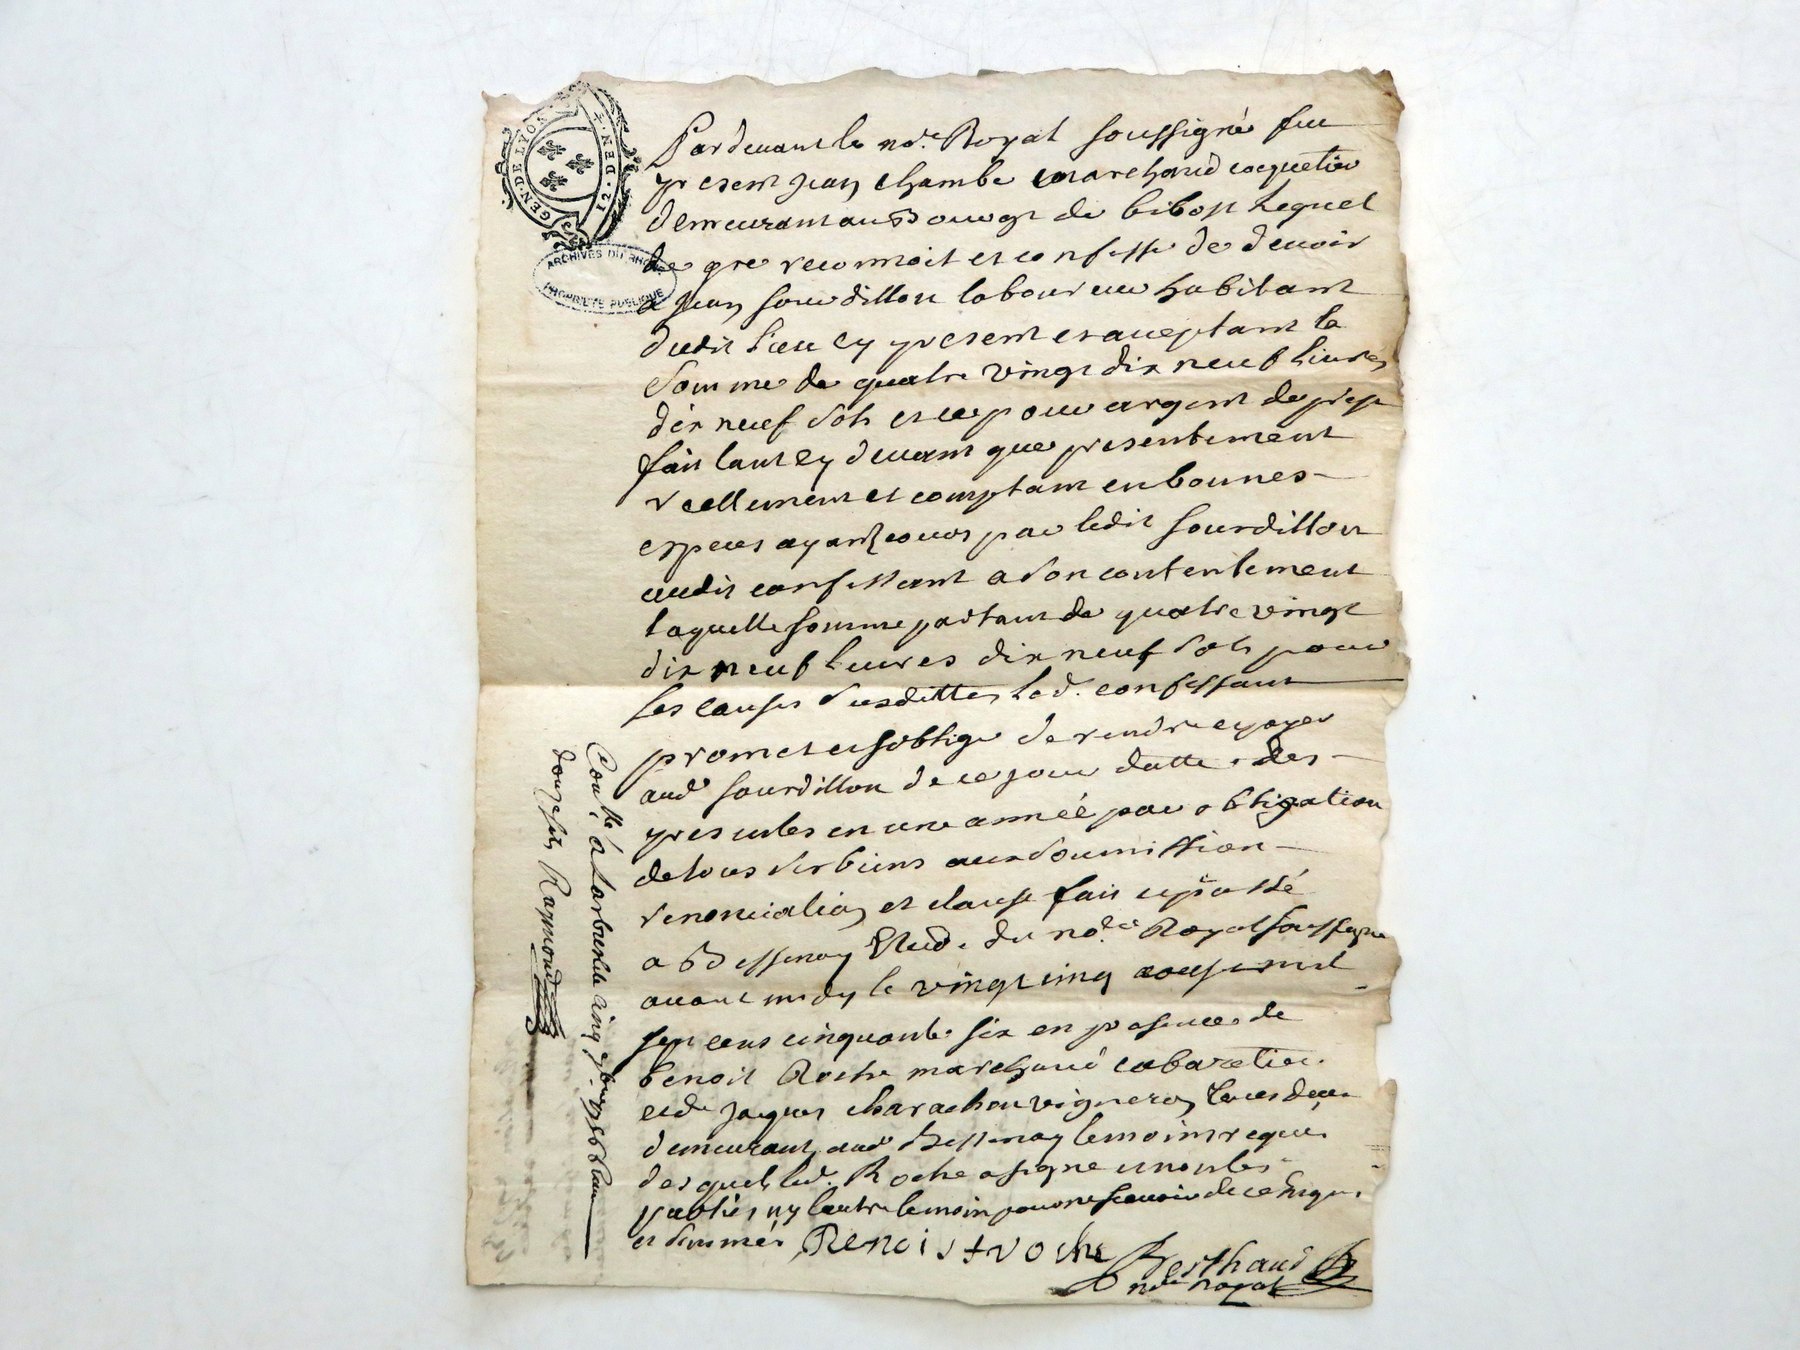 GEN·DE LYON
12·DEN·
ARCHIVES DU RHÔNE
PROPRIÉTÉ PUBLIQUE
Pardevant le no.re Royal soussigné fut
present Jean Chambe marchand coquetier
demeurant au Bourgt de bibost Lequel
de gre reconnoit et confesse de devoir
a Jean sourdillon laboureur habitant
dudit Lieu cy present et aceptant la
somme de quatre vingt dix neuf Livres
dix neuf sols et ce pour argent de prest
fait tant cy devant que presentement
reellement et comptant en bonnes
especes ayant cours par ledit sourdillon
audit confessant a son contentement
laquelle somme partant de quatre vingt
dix neuf livres dix neuf sols pour
les causes susdittes led. confessant
promet et soblige de rendre et payer
aud. sourdillon de ce jour datte des
presentes en une année par obligation
de tous ses biens aux soumission
renonciation et clause fait et passé
a Bessenay Etude du no.re Royal soussigné
avant midy le vingt cinq aoust mil
sept cens cinquante six en presence de
benoit Roche marchand cabaretier
et de Jaques vigneron tous deux
demeurant aud. Bessenay temoins requis
desquels led. Roche a signe et non les
parties ny lautre temoin pour ne scavoir de ce enquis
et sommés BENOIST roche
Berthaud
no.re royal
Con.llé a Larbresle cinq 7bre 1756
douze sols Raymond